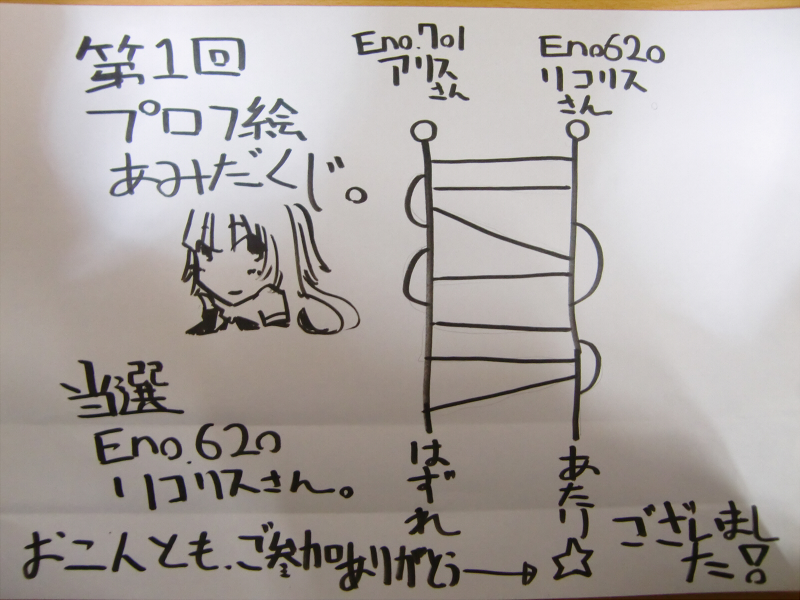 第1回
プロフ絵
あみだくじ。
Eno.701
アリス
さん
Eno620
リコリス
さん
当選
Eno.620
リコリスさん。
はずれ
あたり
☆
おこんとも、ご参加ありがとう→
ござしまし
た!